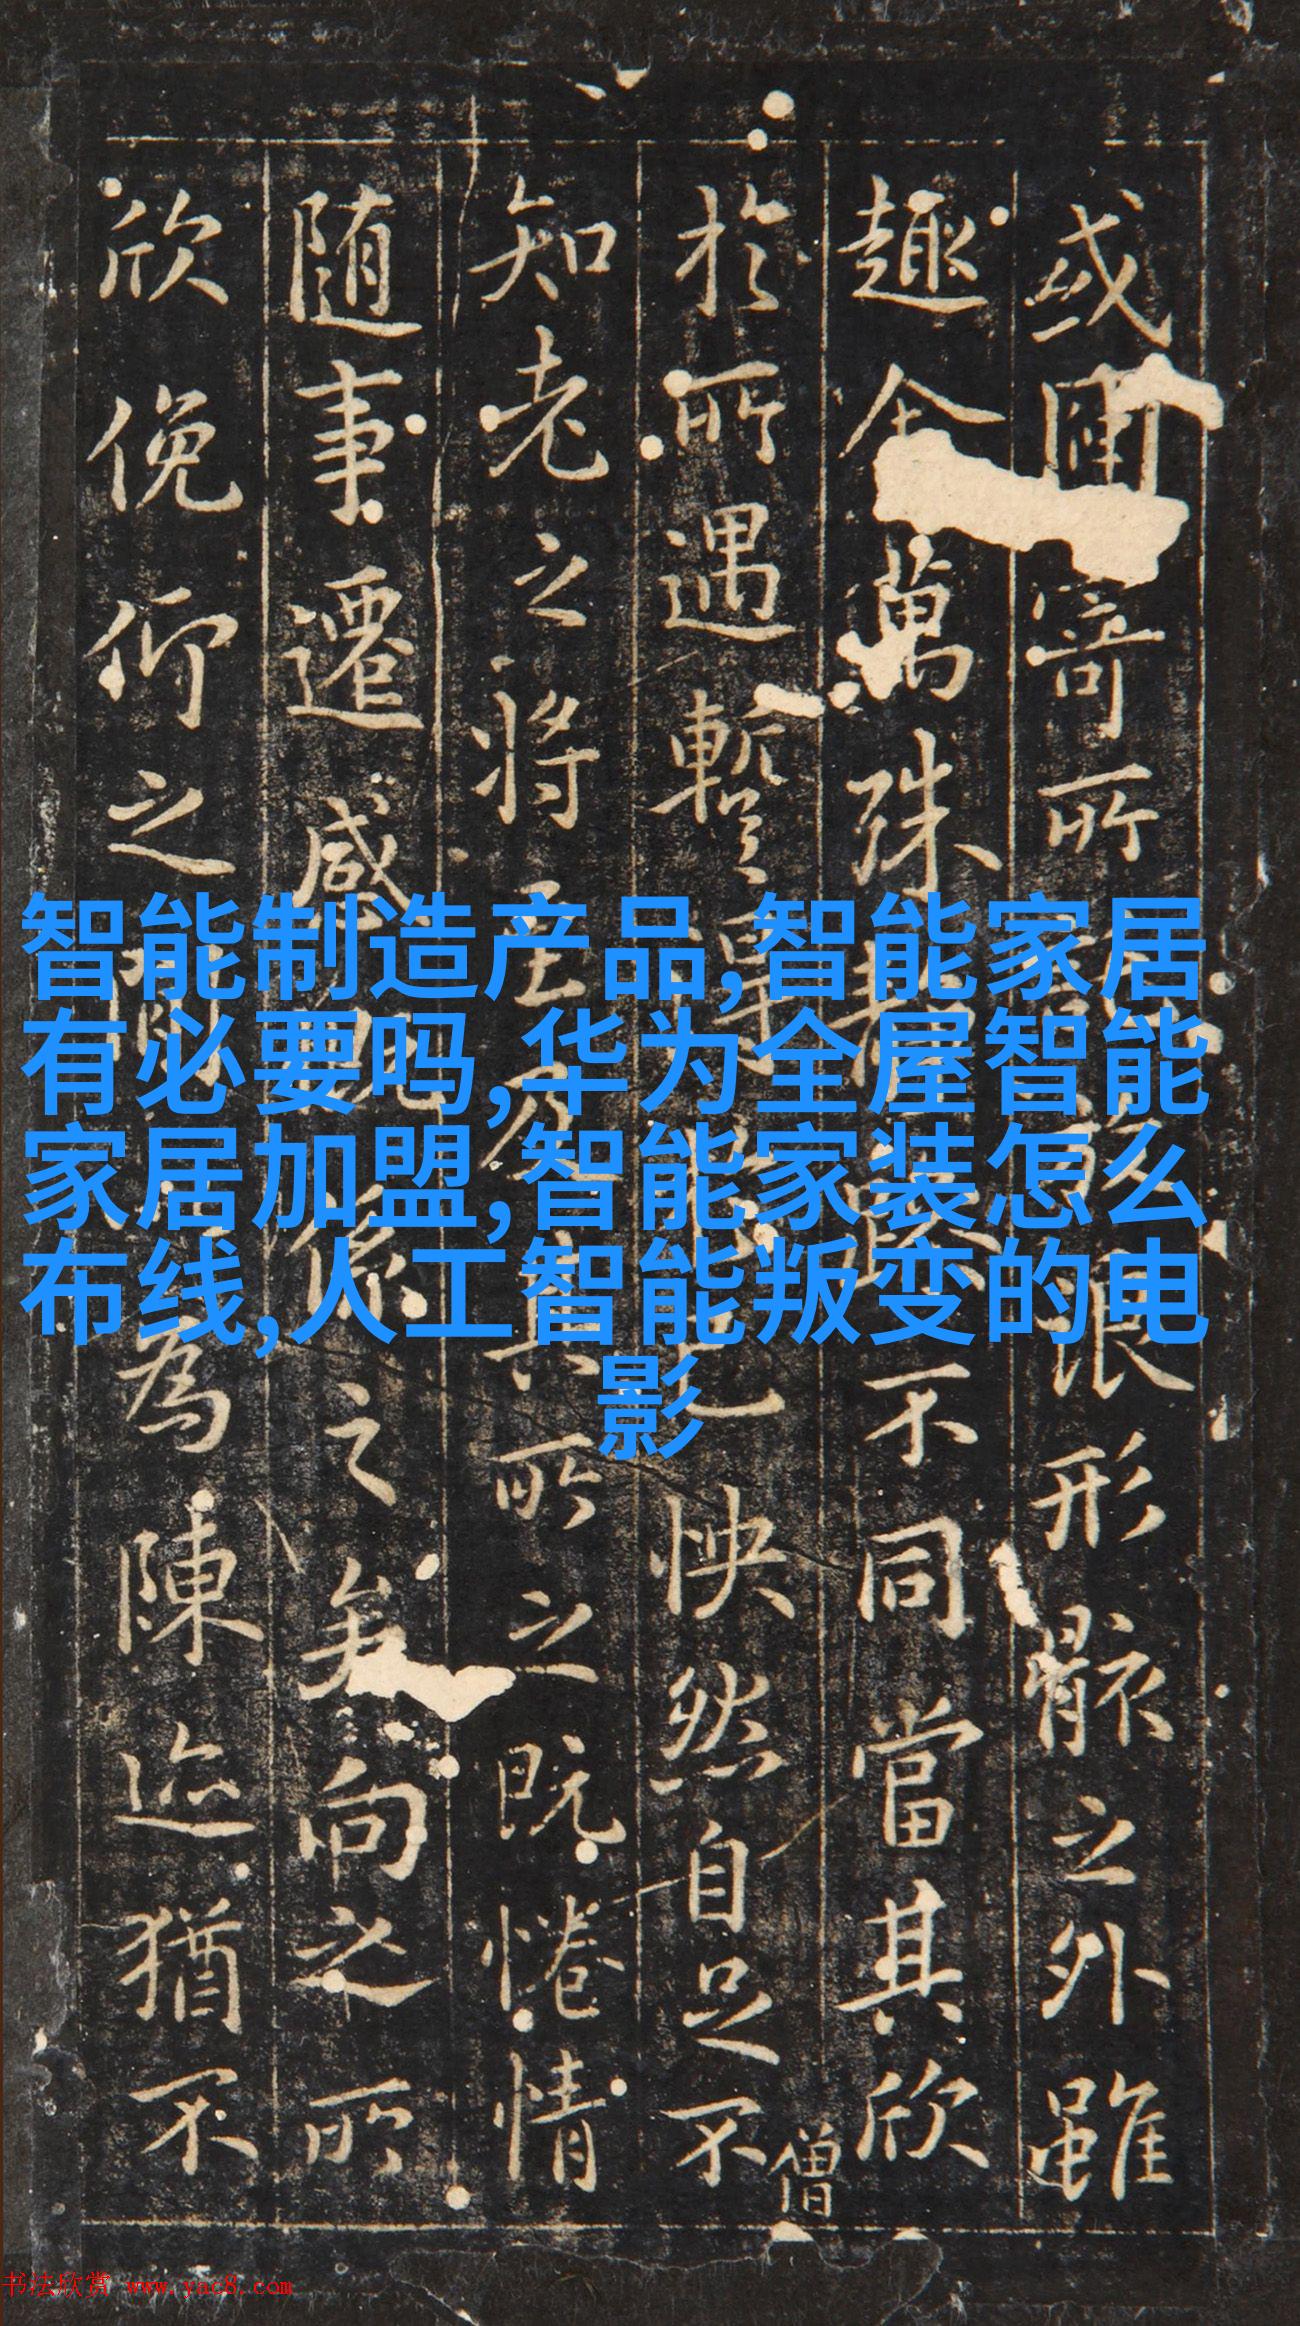 智能制造产品,智能家居
有必要吗,华为全屋智能
家居加盟,智能家装怎么
布线,人工智能叛变的电
影
或因寄所浪形骸之外雖
趣萬殊不同當其欣
於所遇暫己怏然自足不
僧
知老之將至及其所之既惓情
隨事遷感慨係之矣向之所
欣俛仰之間為陳迹猶不
书法欣赏 www.yac8.com